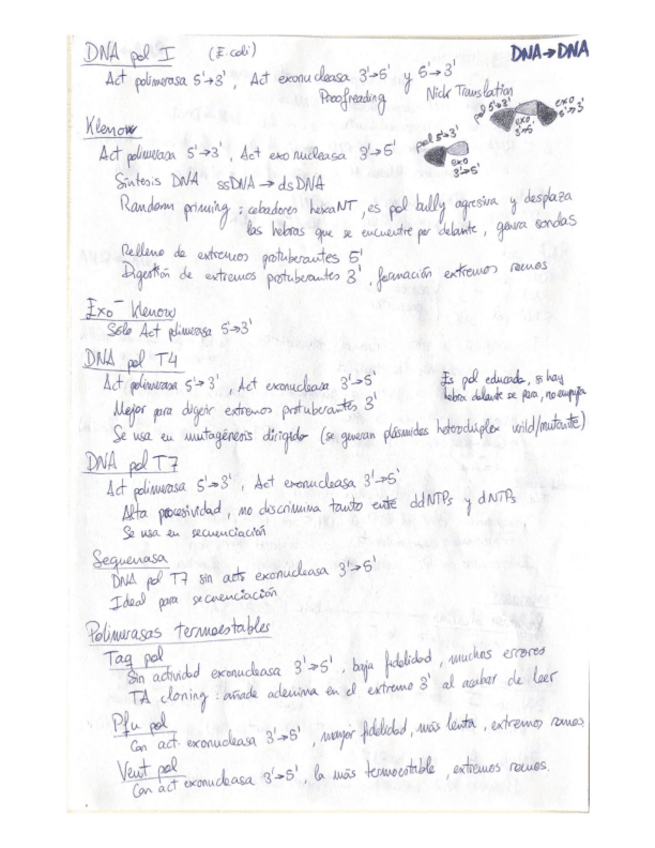 DNA pol I (E. coli) DNA→DNA
Act polimerasa 5'→3', Act exonucleasa 3'→5' y 5'→3'
Proofreading Nick Translation
pol 5'→3' exo 3'→5' exo 5'→3'
Klenow
Act polimerasa 5'→3', Act exonucleasa 3'→5'
pol 5'→3' exo 3'→5'
Síntesis DNA ssDNA → dsDNA
Random priming: cebadores hexaNT, es pol bully agresiva y desplaza
las hebras que se encuentre por delante, genera sondas
Relleno de extremos protuberantes 5'
Digestión de extremos protuberantes 3', formación extremos romos
Exo⁻ Klenow
Sólo Act polimerasa 5'→3'
DNA pol T4
Act polimerasa 5'→3', Act exonucleasa 3'→5'
Es pol educada, si hay
hebra delante se para, no empuja
Mejor para digerir extremos protuberantes 3'
Se usa en mutagénesis dirigida (se generan plásmidos heteroduplex wild/mutante)
DNA pol T7
Act polimerasa 5'→3', Act exonucleasa 3'→5'
Alta procesividad, no discrimina tanto entre ddNTPs y dNTPs
Se usa en secuenciación
Sequenasa
DNA pol T7 sin acts exonucleasa 3'→5'
Ideal para secuenciación
Polimerasas termoestables
Taq pol
Sin actividad exonucleasa 3'→5', baja fidelidad, muchos errores
TA cloning: añade adenina en el extremo 3' al acabar de leer
Pfu pol
Con act. exonucleasa 3'→5', mayor fidelidad, más lenta, extremos romos
Vent pol
Con act exonucleasa 3'→5', la más termoestable, extremos romos.